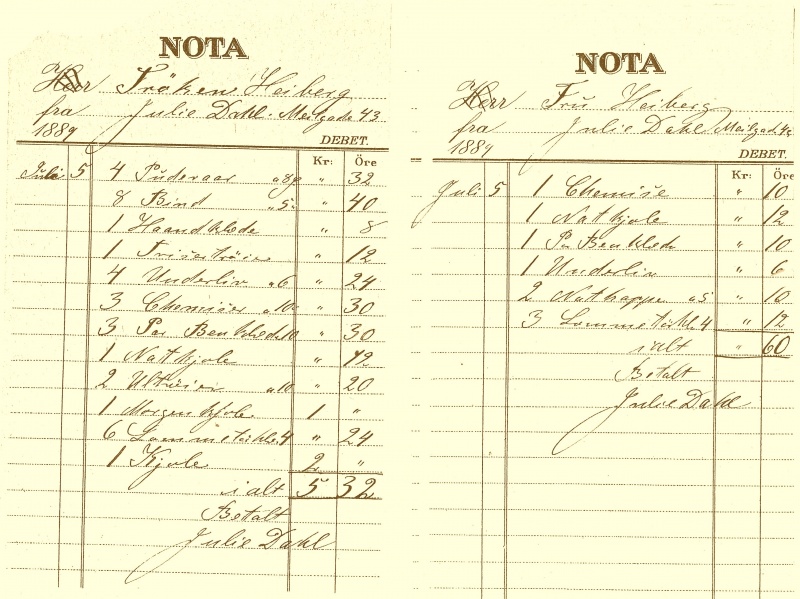 NOTA
Herr Fröken Heiberg
fra Julie Dahl. Meilgade 43
1889
DEBET.
Kr: Öre
Juli 5 4 Püdevaar " 8 " 32
8 Bind " 5 " 40
1 Haandklede " 8
1 Frisertröie " 12
4 Underliv " 6 " 24
3 Chemiser " 10 " 30
3 Par Benklede 10 " 30
1 Natkjole " 12
2 Ultröier " 10 " 20
1 Morgenkjole 1 "
6 Lommetörkle 4 " 24
1 Kjole 2 "
i alt 5 32
Betalt
Julie Dahl
NOTA
Herr Frü Heiberg
fra Julie Dahl Meilgade
1889
DEBET.
Kr: Öre
Juli 5 1 Chemise " 10
1 Natkjole " 12
1 Par Benklede " 10
1 Underliv " 6
2 Nathapper " 5 " 10
3 Lommetörkle 4 " 12
i alt " 60
Betalt
Julie Dahl